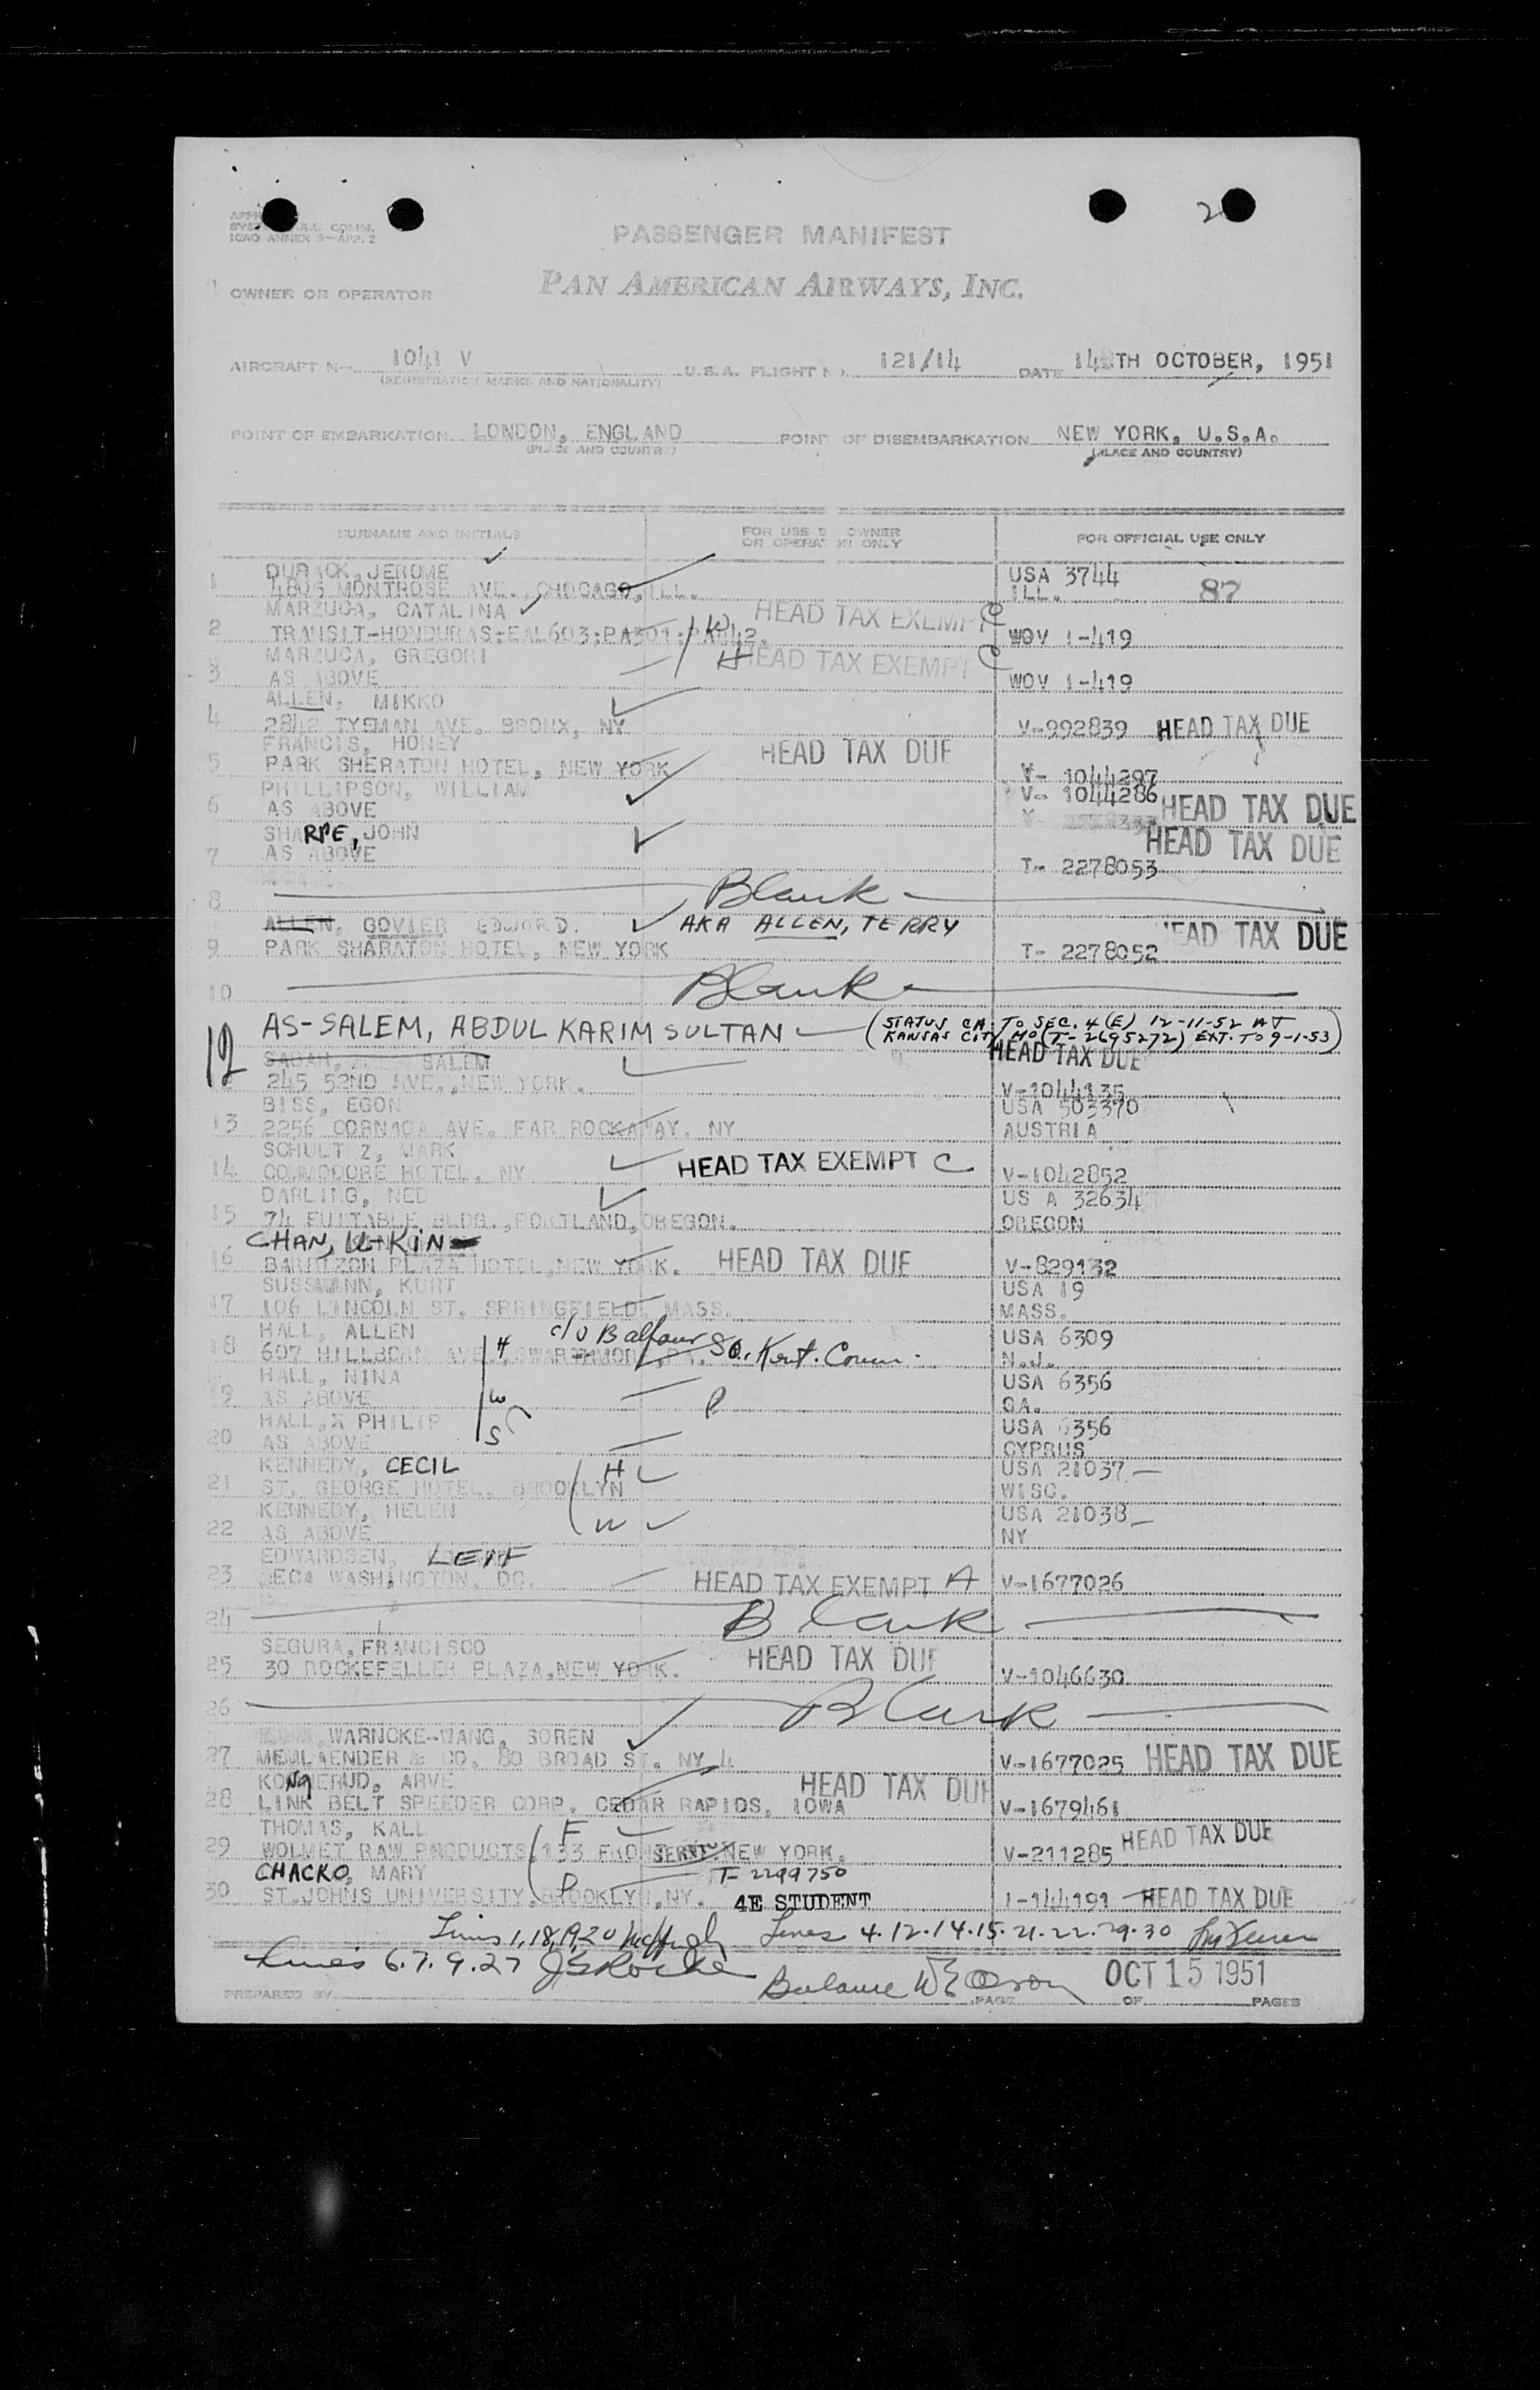 2
ICAO ANNEX 9—APP. 2
PASSENGER MANIFEST
OWNER OR OPERATOR PAN AMERICAN AIRWAYS, INC.
AIRCRAFT No. 1041 V U.S.A. FLIGHT No. 121/14 DATE 14 TH OCTOBER, 1951
(REGISTRATION MARKS AND NATIONALITY)
POINT OF EMBARKATION LONDON, ENGLAND POINT OF DISEMBARKATION NEW YORK, U.S.A.
(PLACE AND COUNTRY) (PLACE AND COUNTRY)
SURNAME AND INITIALS FOR USE BY OWNER OR OPERATOR ONLY FOR OFFICIAL USE ONLY
DURACK, JEROME USA 3744
1 4805 MONTROSE AVE., CHOCAGO, ILL. ILL. 87
MARZUCA, CATALINA HEAD TAX EXEMPT C
2 TRANSIT-HONDURAS:EAL603:PA301:PA W WOV 1-419
MARZUCA, GREGORI H HEAD TAX EXEMPT C
3 AS ABOVE WOV 1-419
ALLEN, MIKKO
4 2842 TYEMAN AVE. BRONX, NY V-992839 HEAD TAX DUE
FRANCIS, HONEY HEAD TAX DUE
5 PARK SHERATON HOTEL, NEW YORK V- 1044297
PHILLIPSON, WILLIAM V- 1044286
6 AS ABOVE HEAD TAX DUE
SHARPE, JOHN HEAD TAX DUE
7 AS ABOVE T- 2278053
8 Blank
ALLEN, GOVIER EDWARD. AKA ALLEN, TERRY HEAD TAX DUE
9 PARK SHARATON HOTEL, NEW YORK T- 2278052
10 Blank
AS-SALEM, ABDUL KARIM SULTAN (STATUS CH. TO SEC. 4(E) 12-11-52 AT
KANSAS CITY MO (T-2695272) EXT. TO 9-1-53)
12 SABAH, SALEM HEAD TAX DUE
245 52ND AVE., NEW YORK. V-1044135
BISS, EGON USA 503370
13 2256 CORNAGA AVE. FAR ROCKAWAY. NY AUSTRIA
SCHULT Z, MARK
14 COMMODORE HOTEL, NY HEAD TAX EXEMPT C V-1042852
DARLING, NED US A 32634
15 74 EUITABLE BLDG., PORTLAND, OREGON. OREGON
CHAN, U-KIN
16 BARBIZON PLAZA HOTEL, NEW YORK. HEAD TAX DUE V-829132
SUSSMANN, KURT USA 19
17 106 LINCOLN ST. SPRINGFIELD, MASS. MASS.
HALL, ALLEN H c/o Balfour So. Kent. Conn. USA 6309
18 607 HILLBORN AVE., SWARTHMORE, PA. N.J.
HALL, NINA USA 6356
19 AS ABOVE W P GA.
HALL, PHILIP USA 6356
20 AS ABOVE S CYPRUS
KENNEDY, CECIL H USA 21037
21 ST. GEORGE HOTEL, BROOKLYN WISC.
KENNEDY, HELEN USA 21038
22 AS ABOVE W NY
EDWARDSEN, LEIF
23 SECA WASHINGTON, DC. HEAD TAX EXEMPT A V-1677026
24 Blank
SEGURA, FRANCISCO HEAD TAX DUE
25 30 ROCKEFELLER PLAZA, NEW YORK. V-1046630
26 Blank
WARNCKE-WANG, SOREN
27 & CO. 80 BROAD ST. NY 4 V-1677025 HEAD TAX DUE
KONGERUD, ARVE HEAD TAX DUE
28 LINK BELT SPEEDER CORP. CEDAR RAPIDS, IOWA V-1679461
THOMAS, KALL F HEAD TAX DUE
29 WOLMET RAW PRODUCTS, 133 FRONT NEW YORK. V-211285
CHACKO, MARY T-2299750
30 ST. JOHNS UNIVERSITY, BROOKLYN, NY. D 4E STUDENT I-144191 HEAD TAX DUE
Lines 1, 18, 19, 20 McHugh Lines 4.12.14.15.21.22.29.30
Lines 6.7.9.27 Balance OCT 15 1951
PREPARED BY PAGE OF PAGES